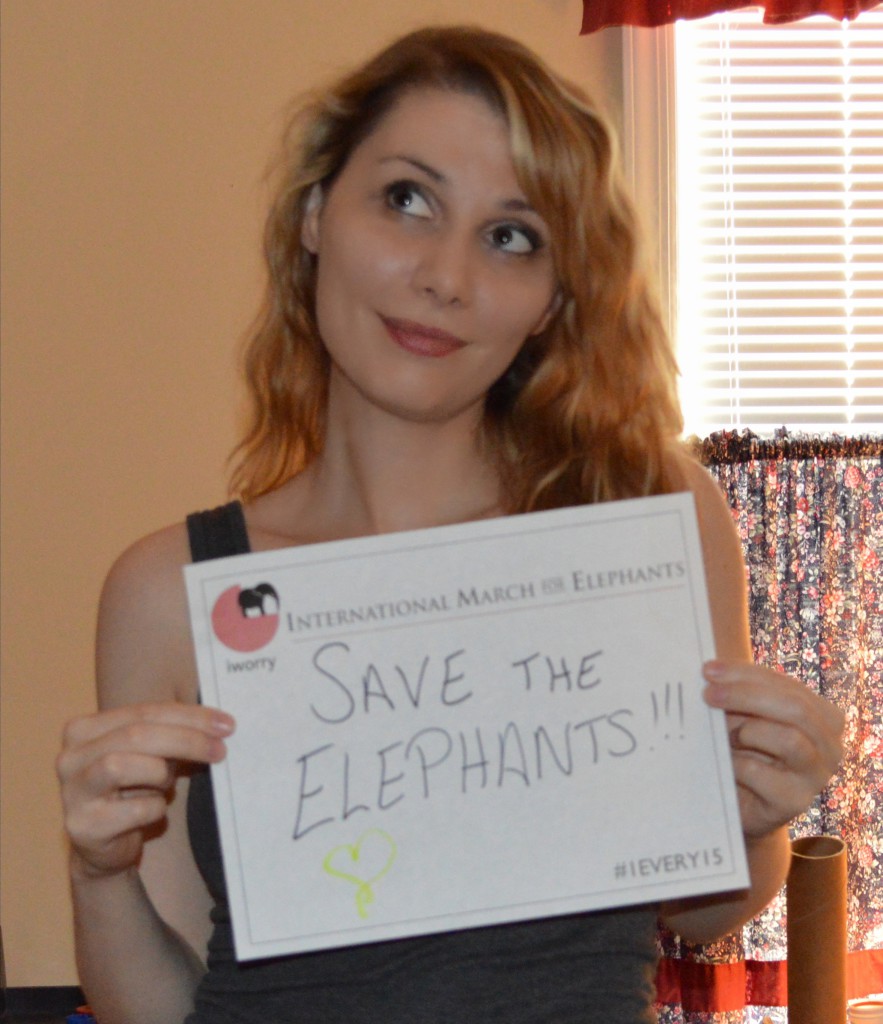 INTERNATIONAL MARCH FOR ELEPHANTS
iworry
SAVE THE
ELEPHANTS!!!
#1EVERY15